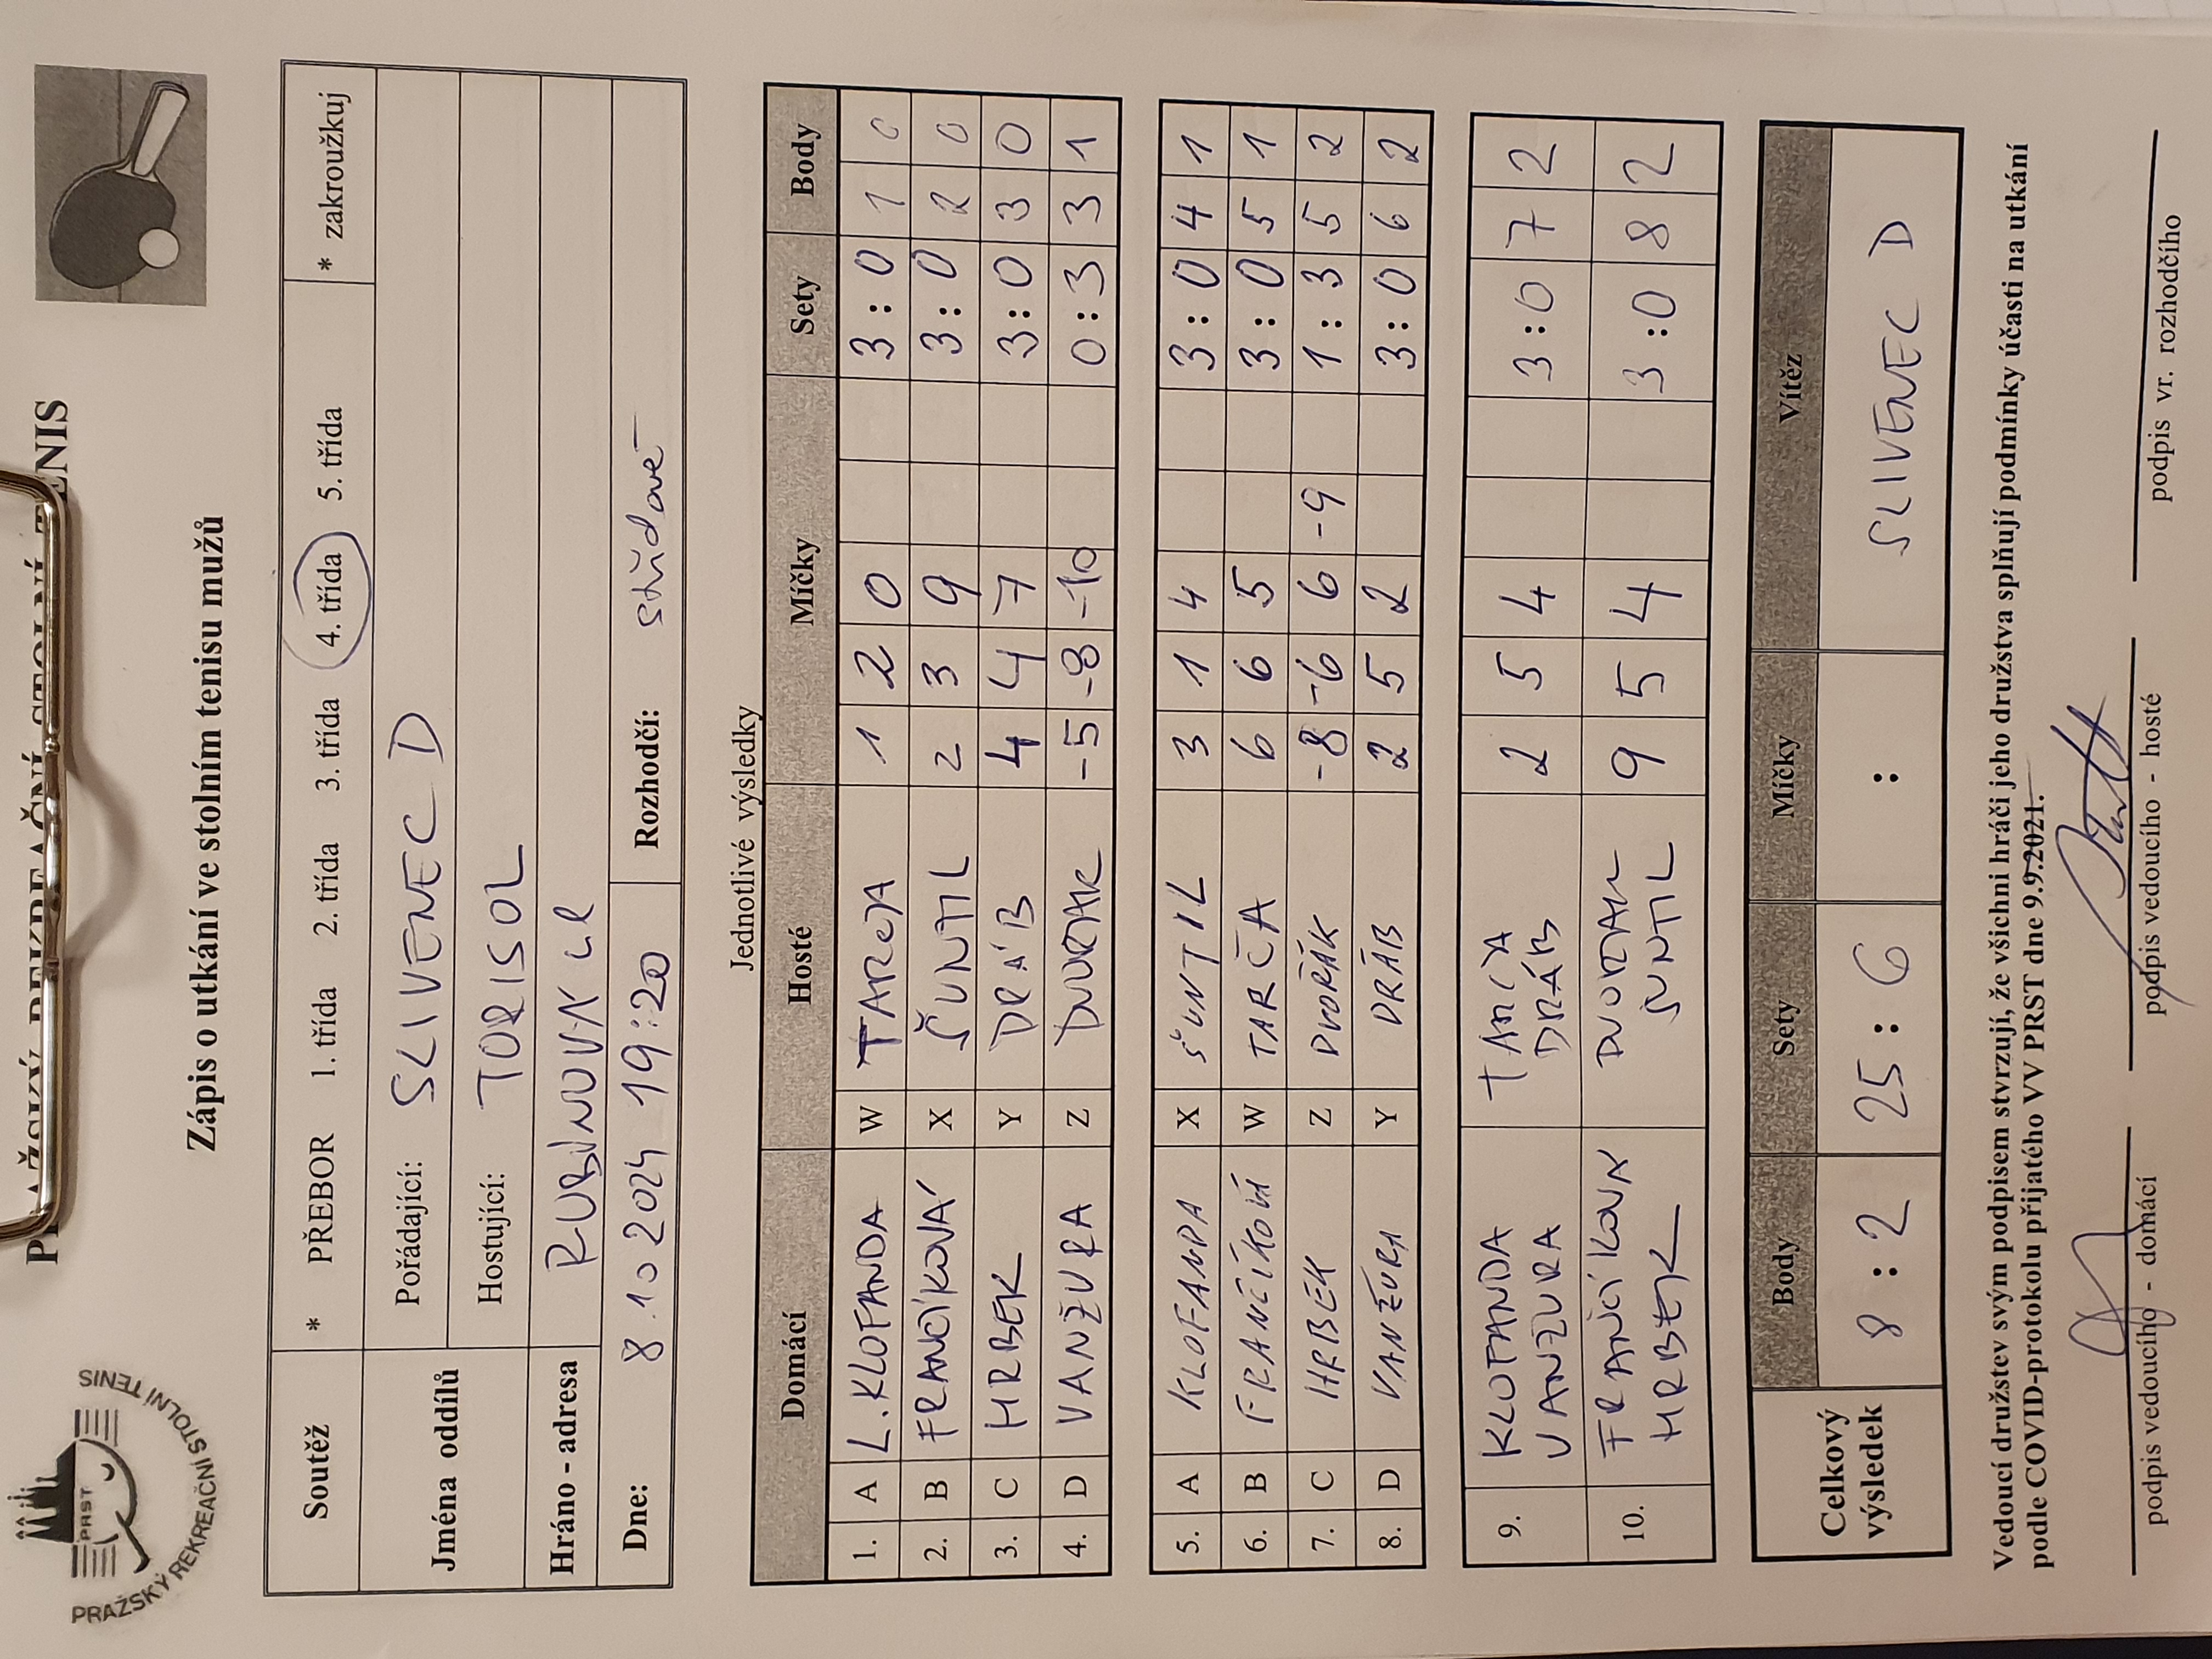 PRAŽSKÝ REKREAČNÍ STOLNÍ TENIS
PRST
PRAŽSKÝ REKREAČNÍ STOLNÍ TENIS
Zápis o utkání ve stolním tenisu mužů
Soutěž * PŘEBOR 1. třída 2. třída 3. třída 4. třída 5. třída * zakroužkuj
Jména oddílů Pořádající: SLIVENEC D
Hostující: TORISOL
Hráno - adresa
Dne: 8.10 2024 19:20 Rozhodčí: střídavě
Jednotlivé výsledky
Domácí Hosté Míčky Sety Body
1. A L. KLOFANDA W TARČA 1 2 0 3 : 0 1 0
2. B FRANČÍKOVÁ X ŠUNTIL 2 3 9 3 : 0 2 0
3. C HRBEK Y DRÁB 4 4 7 3 : 0 3 0
4. D VANŽURA Z DVOŘÁK -5 -8 -10 0 : 3 3 1
5. A KLOFANDA X ŠUNTIL 3 1 4 3 : 0 4 1
6. B FRANČÍKOVÁ W TARČA 6 6 5 3 : 0 5 1
7. C HRBEK Z DVOŘÁK -8 -6 6 -9 1 : 3 5 2
8. D VANŽURA Y DRÁB 2 5 2 3 : 0 6 2
9. KLOFANDA TARČA 2 5 4 3 : 0 7 2
VANŽURA DRÁB
10. FRANČÍKOVÁ DVOŘÁK 9 5 4 3 : 0 8 2
HRBEK ŠUNTIL
Celkový výsledek Body Sety Míčky Vítěz
8 : 2 25 : 6 : SLIVENEC D
Vedoucí družstev svým podpisem stvrzují, že všichni hráči jeho družstva splňují podmínky účasti na utkání
podle COVID-protokolu přijatého VV PRST dne 9.9.2021.
podpis vedoucího - domácí podpis vedoucího - hosté podpis vr. rozhodčího